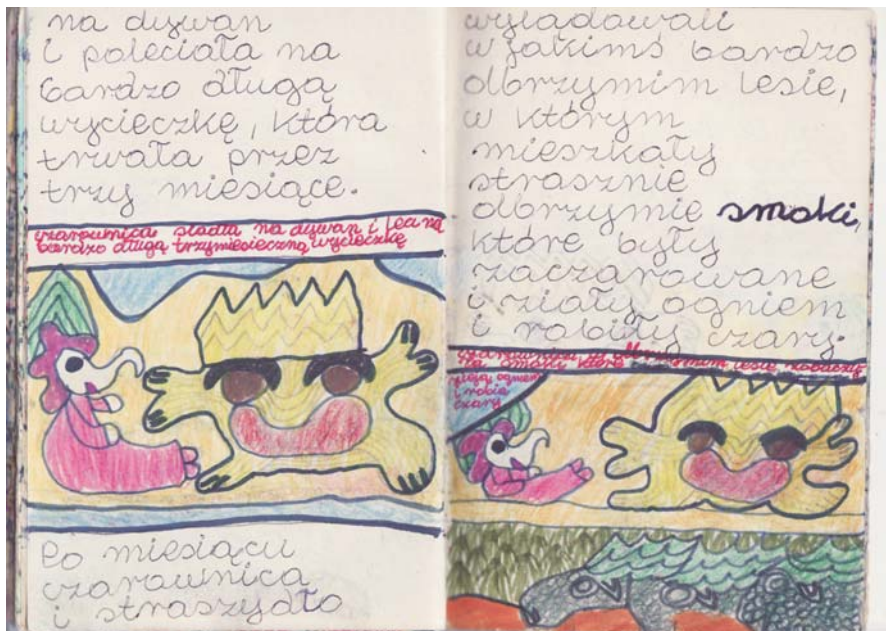 na dywan
i poleciała na
bardzo długą
wycieczkę, która
trwała przez
trzy miesiące.
czarownica siadła na dywan i leci na
bardzo długą trzymiesięczną wycieczkę
Po miesiącu
czarownica
i straszydło
wylądowali
w jakimś bardzo
olbrzymim lesie,
w którym
mieszkały
strasznie
olbrzymie smoki,
które były
zaczarowane
i ziały ogniem
i robiły czary.
lesie zobaczył
smoki które
zieją ogniem
i robią
czary